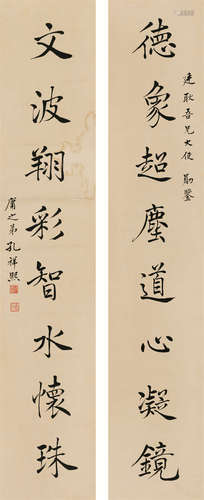 德象超塵道心凝鏡
達耿吾兄大使勛鑒
文波翔彩智水懷珠
庸之弟孔祥熙